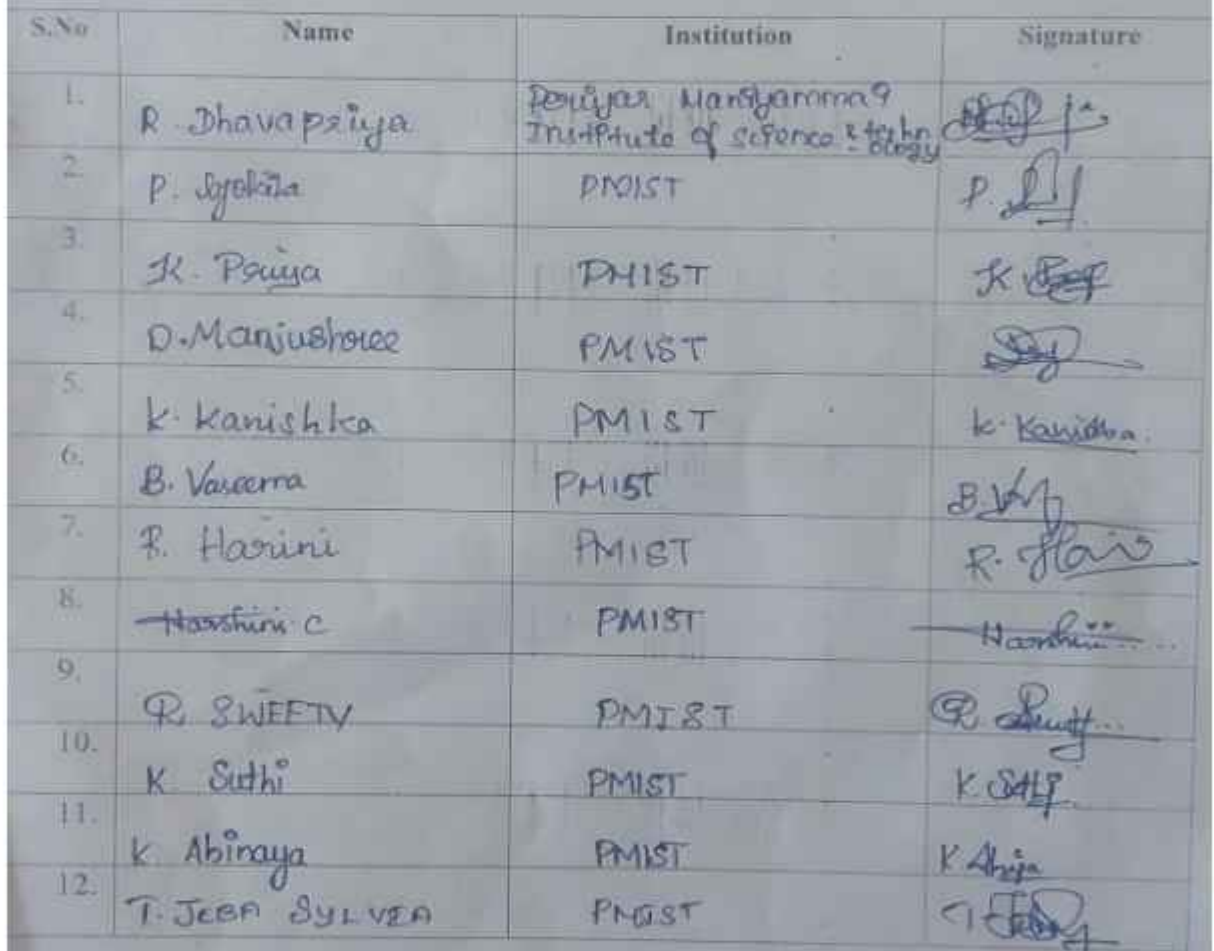 S.No Name Institution Signature
1. R. Dhavapriya Periyar Maniyammai
Institute of science & techn
ology
2. P. PMIST P.
3. K. Priya PMIST K
4. D. Manjushree PMIST
5. K. Kanishka PMIST K. Kanishka.
6. B. Vaseema PMIST B.
7. R. Harini PMIST R. Hari
8. Harshini C PMIST Harshini
9. R. SWEETY PMIST R.
10. K Suthi PMIST K
11. K Abinaya PMIST K
12. T. JEBA SYLVIA PMIST T